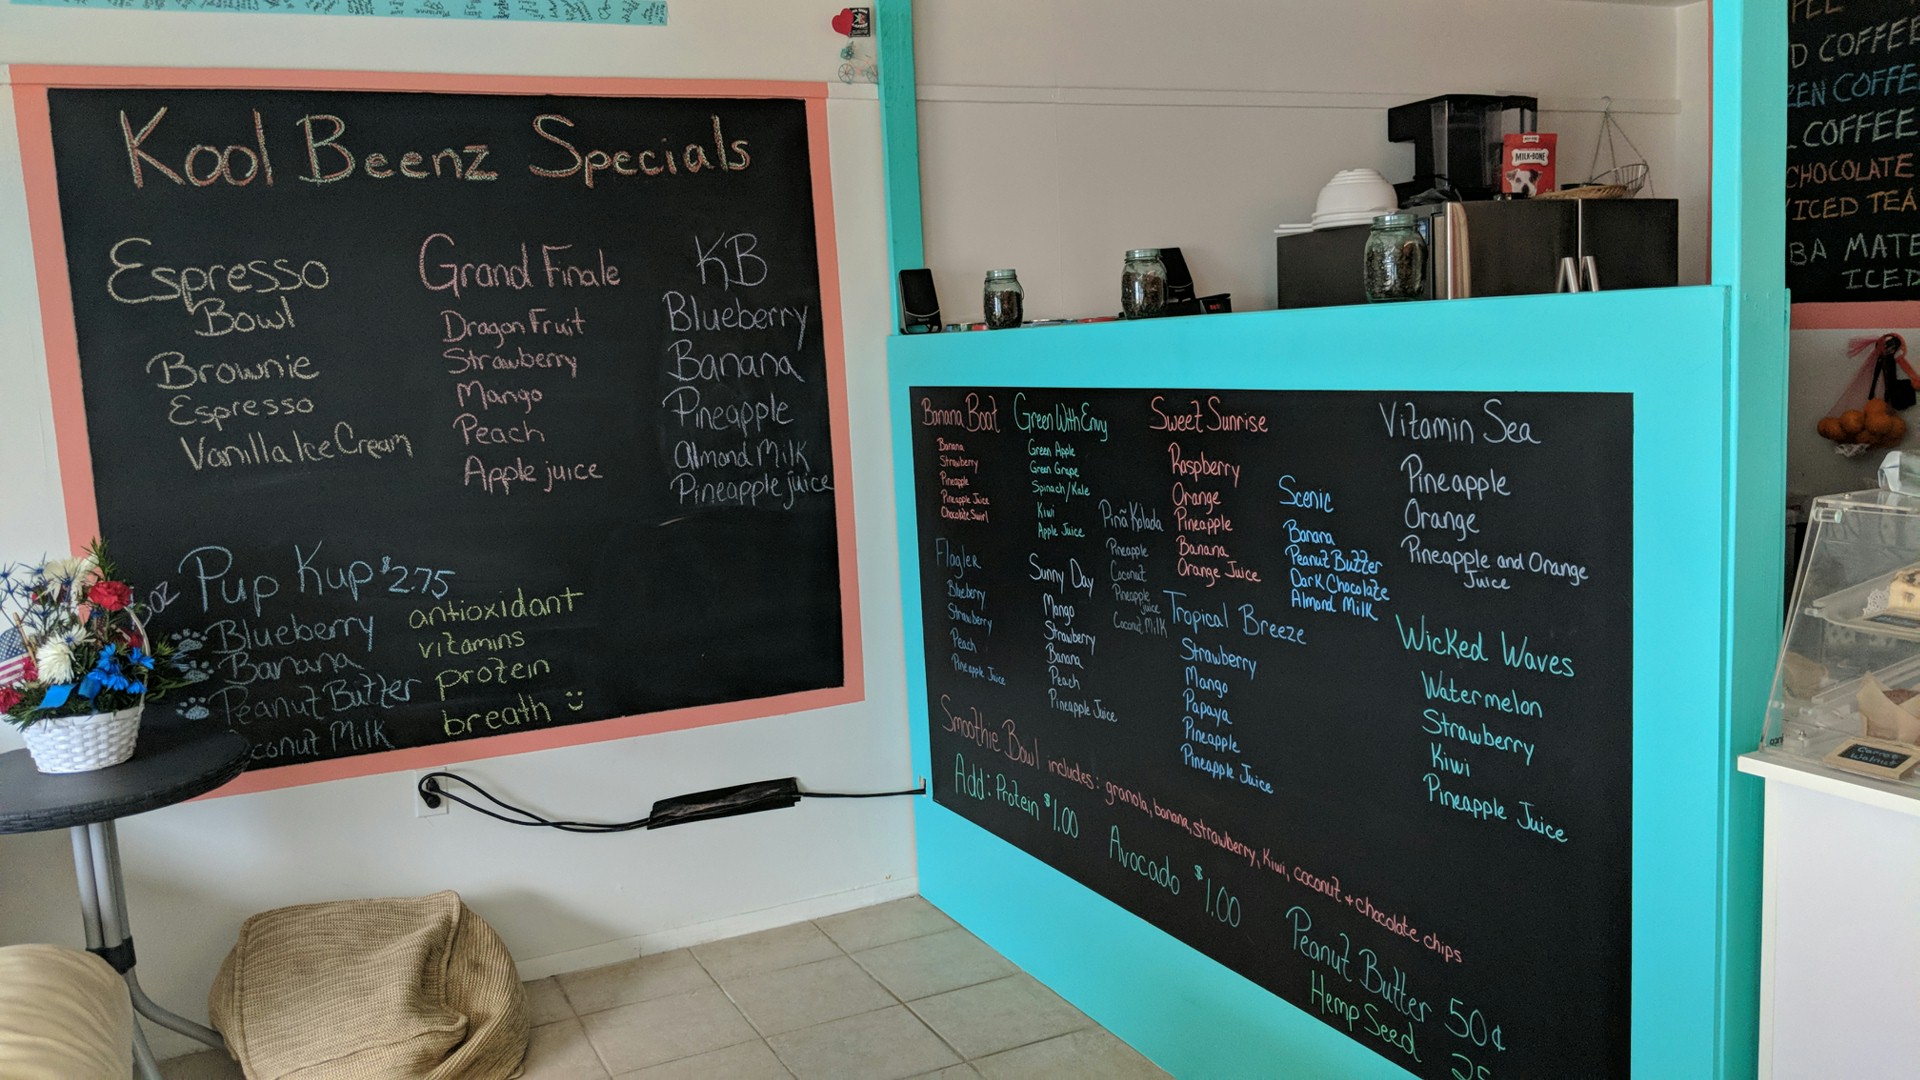 Kool Beenz Specials
Espresso
Bowl
Brownie
Espresso
Vanilla Ice Cream
Grand Finale
Dragon Fruit
Strawberry
Mango
Peach
Apple juice
KB
Blueberry
Banana
Pineapple
Almond Milk
Pineapple juice
oz Pup Kup $2.75
Blueberry
Banana
Peanut Butter
conut Milk
antioxidant
vitamins
protein
breath
Banana Boat
Banana
Strawberry
Pineapple
Pineapple Juice
Chocolate Swirl
Flagler
Blueberry
Strawberry
Peach
Pineapple Juice
Green With Envy
Green Apple
Green Grape
Spinach/Kale
Kiwi
Apple Juice
Sunny Day
Mango
Strawberry
Banana
Peach
Pineapple Juice
Piña Kolada
Pineapple
Coconut
Pineapple
Juice
Coconut Milk
Sweet Sunrise
Raspberry
Orange
Pineapple
Banana
Orange Juice
Tropical Breeze
Strawberry
Mango
Papaya
Pineapple
Pineapple Juice
Scenic
Banana
Peanut Butter
Dark Chocolate
Almond Milk
Vitamin Sea
Pineapple
Orange
Pineapple and Orange
Juice
Wicked Waves
Watermelon
Strawberry
Kiwi
Pineapple Juice
Smoothie Bowl includes: granola, banana, strawberry, Kiwi, coconut + chocolate chips
Add: Protein $1.00 Avocado $1.00 Peanut Butter 50¢
Hemp Seed 25
MILK-BONE
D COFFEE
ZEN COFFE
COFFEE
CHOCOLATE
ICED TEA
BA MATE
ICED
Carrot
Walnut